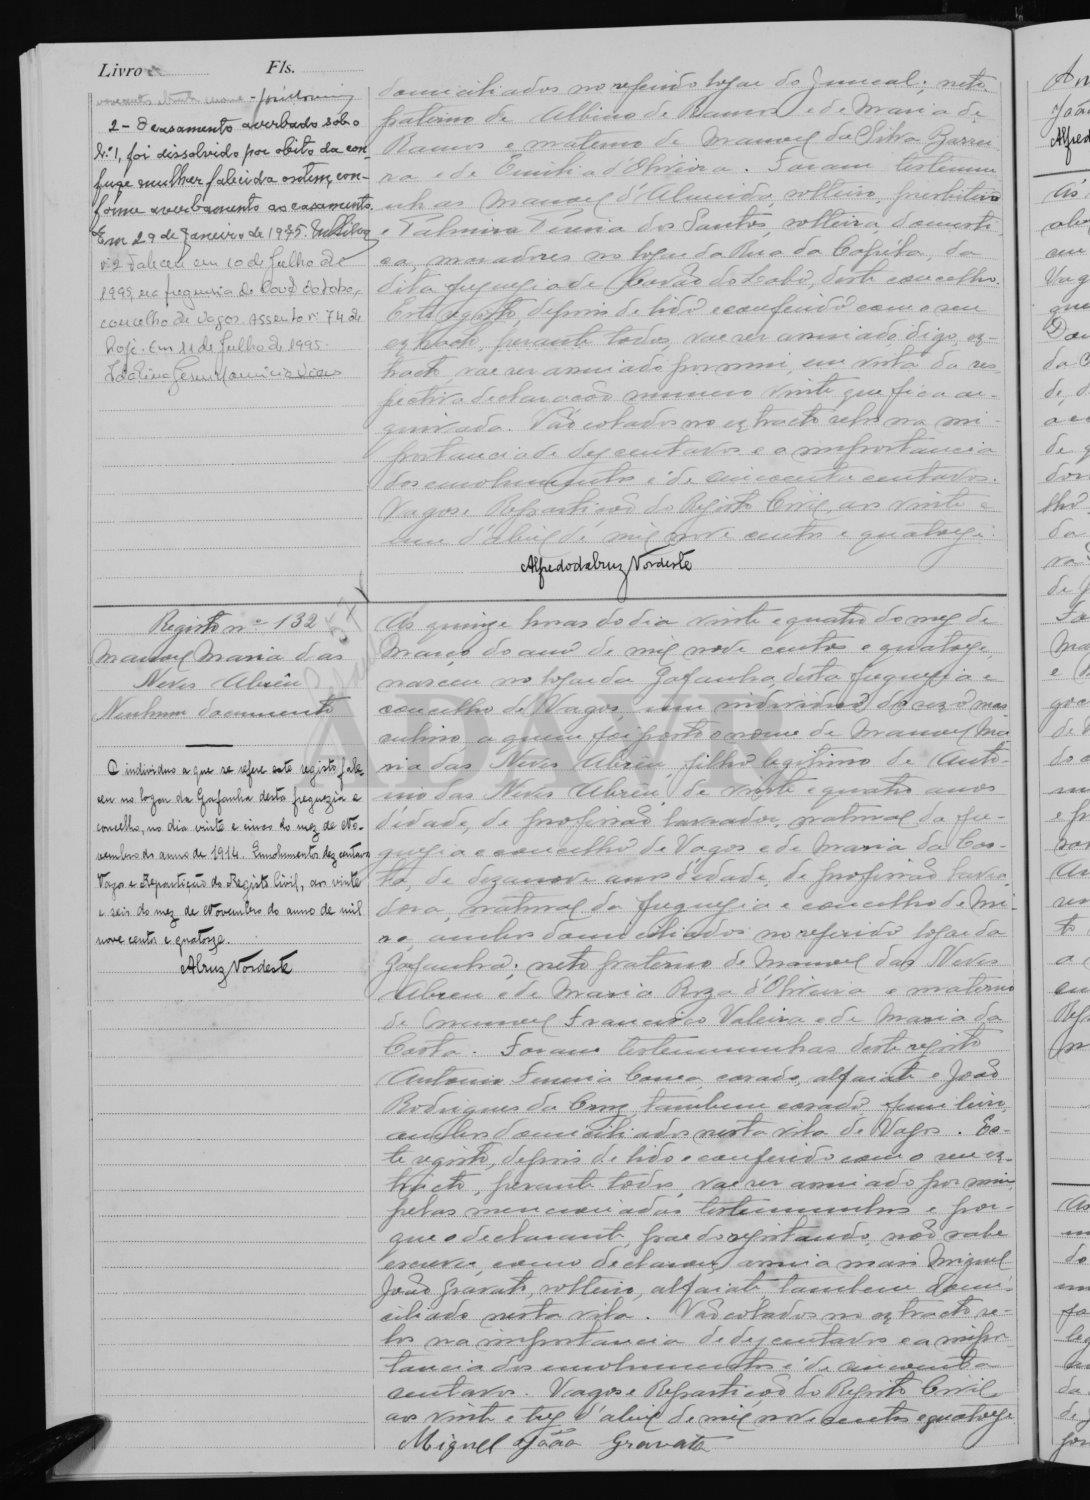 Livro
Fls.
2 - O casamento averbado sob o
N.º 1, foi dissolvido por obito da con-
juge mulher falecida ontem, con-
forme averbamento ao casamento.
Em 29 de Janeiro de 1975.
nº 2 Faleceu em 10 de Julho de
1995, na freguesia de
concelho de Vagos. Assento nº 74 de
hoje. Em 11 de Julho de 1995.
domiciliados no referido logar do Juncal; neto
paterno de Albino de Ramos e de Maria de
Ramos e materno de Manoel da Silva
e de Emilia d'Oliveira. Foram testemu-
nhas Manoel d'Almeida, solteiro,
e Palmira dos Santos, solteira, domesti-
ca, moradores no logar da Rua da Capela, da
dita freguezia de Covão do Lobo, deste concelho.
Este registo, depois de lido e conferido com o seu
extracto, perante todos, vae ser assinado digo, ex-
tracto vae ser assinado por mim, em vista da res-
pectiva declaração numero vinte que fica ar-
quivada. Vão colados no extracto selos na im-
portancia de dez centavos e a importancia
dos emolumentos é de cincoenta centavos.
Vagos e Repartição do Registo Civil, aos vinte e
um d'abril de mil nove centos e quatorze.
Alfredo da Cruz Nordeste
Registo nº 132
Manoel Maria das
Neves Abreu
Nenhum documento
O individuo a que se refere este registo fale-
ceu no logar da Gafanha desta freguezia e
concelho, no dia vinte e cinco do mez de No-
vembro do anno de 1914. Emolumentos dez centavos
Vagos e Repartição do Registo Civil, aos vinte
e seis do mez de Novembro do anno de mil
nove centos e quatorze.
ACruz Nordeste
ADAVR
Ás quinze horas do dia vinte e quatro do mez de
Março do ano de mil nove centos e quatorze,
nasceu no logar da Gafanha, desta freguezia e
concelho de Vagos, um individuo do sexo mas-
culino a quem foi posto o nome de Manoel Ma-
ria das Neves Abreu, filho legitimo de Anto-
nio das Neves Abreu, de vinte e quatro anos
d'edade, de profissão lavrador, natural da fre-
guezia e concelho de Vagos e de Maria da Cos-
ta, de dezanove anos d'edade, de profissão lavra-
dora, natural da freguezia e concelho de Mi-
ra, ambos domiciliados no referido logar da
Gafanha; neto paterno de Manoel das Neves
Abreu e de Maria Roza d'Oliveira e materno
de Manoel Francisco Valeira e de Maria da
Costa. Foram testemunhas deste registo
Antonio casado, alfaiate e João
Rodrigues da Cruz, tambem casado, funileiro,
ambos domiciliados nesta vila de Vagos. Es-
te registo, depois de lido e conferido com o seu ex-
tracto, perante todos, vae ser assinado por mim,
pelas mencionadas testemunhas e por-
que o declarante, pae do registando, não sabe
escrever, como declarou, assina mais Miguel
João Gravato, solteiro, alfaiate, tambem domi-
ciliado nesta vila. Vão colados no extracto se-
los na importancia de dez centavos e a impor-
tancia dos emolumentos é de cincoenta
centavos. Vagos e Repartição do Registo Civil
aos vinte e tres d'abril de mil nove centos e quatorze.
Miguel João Gravato